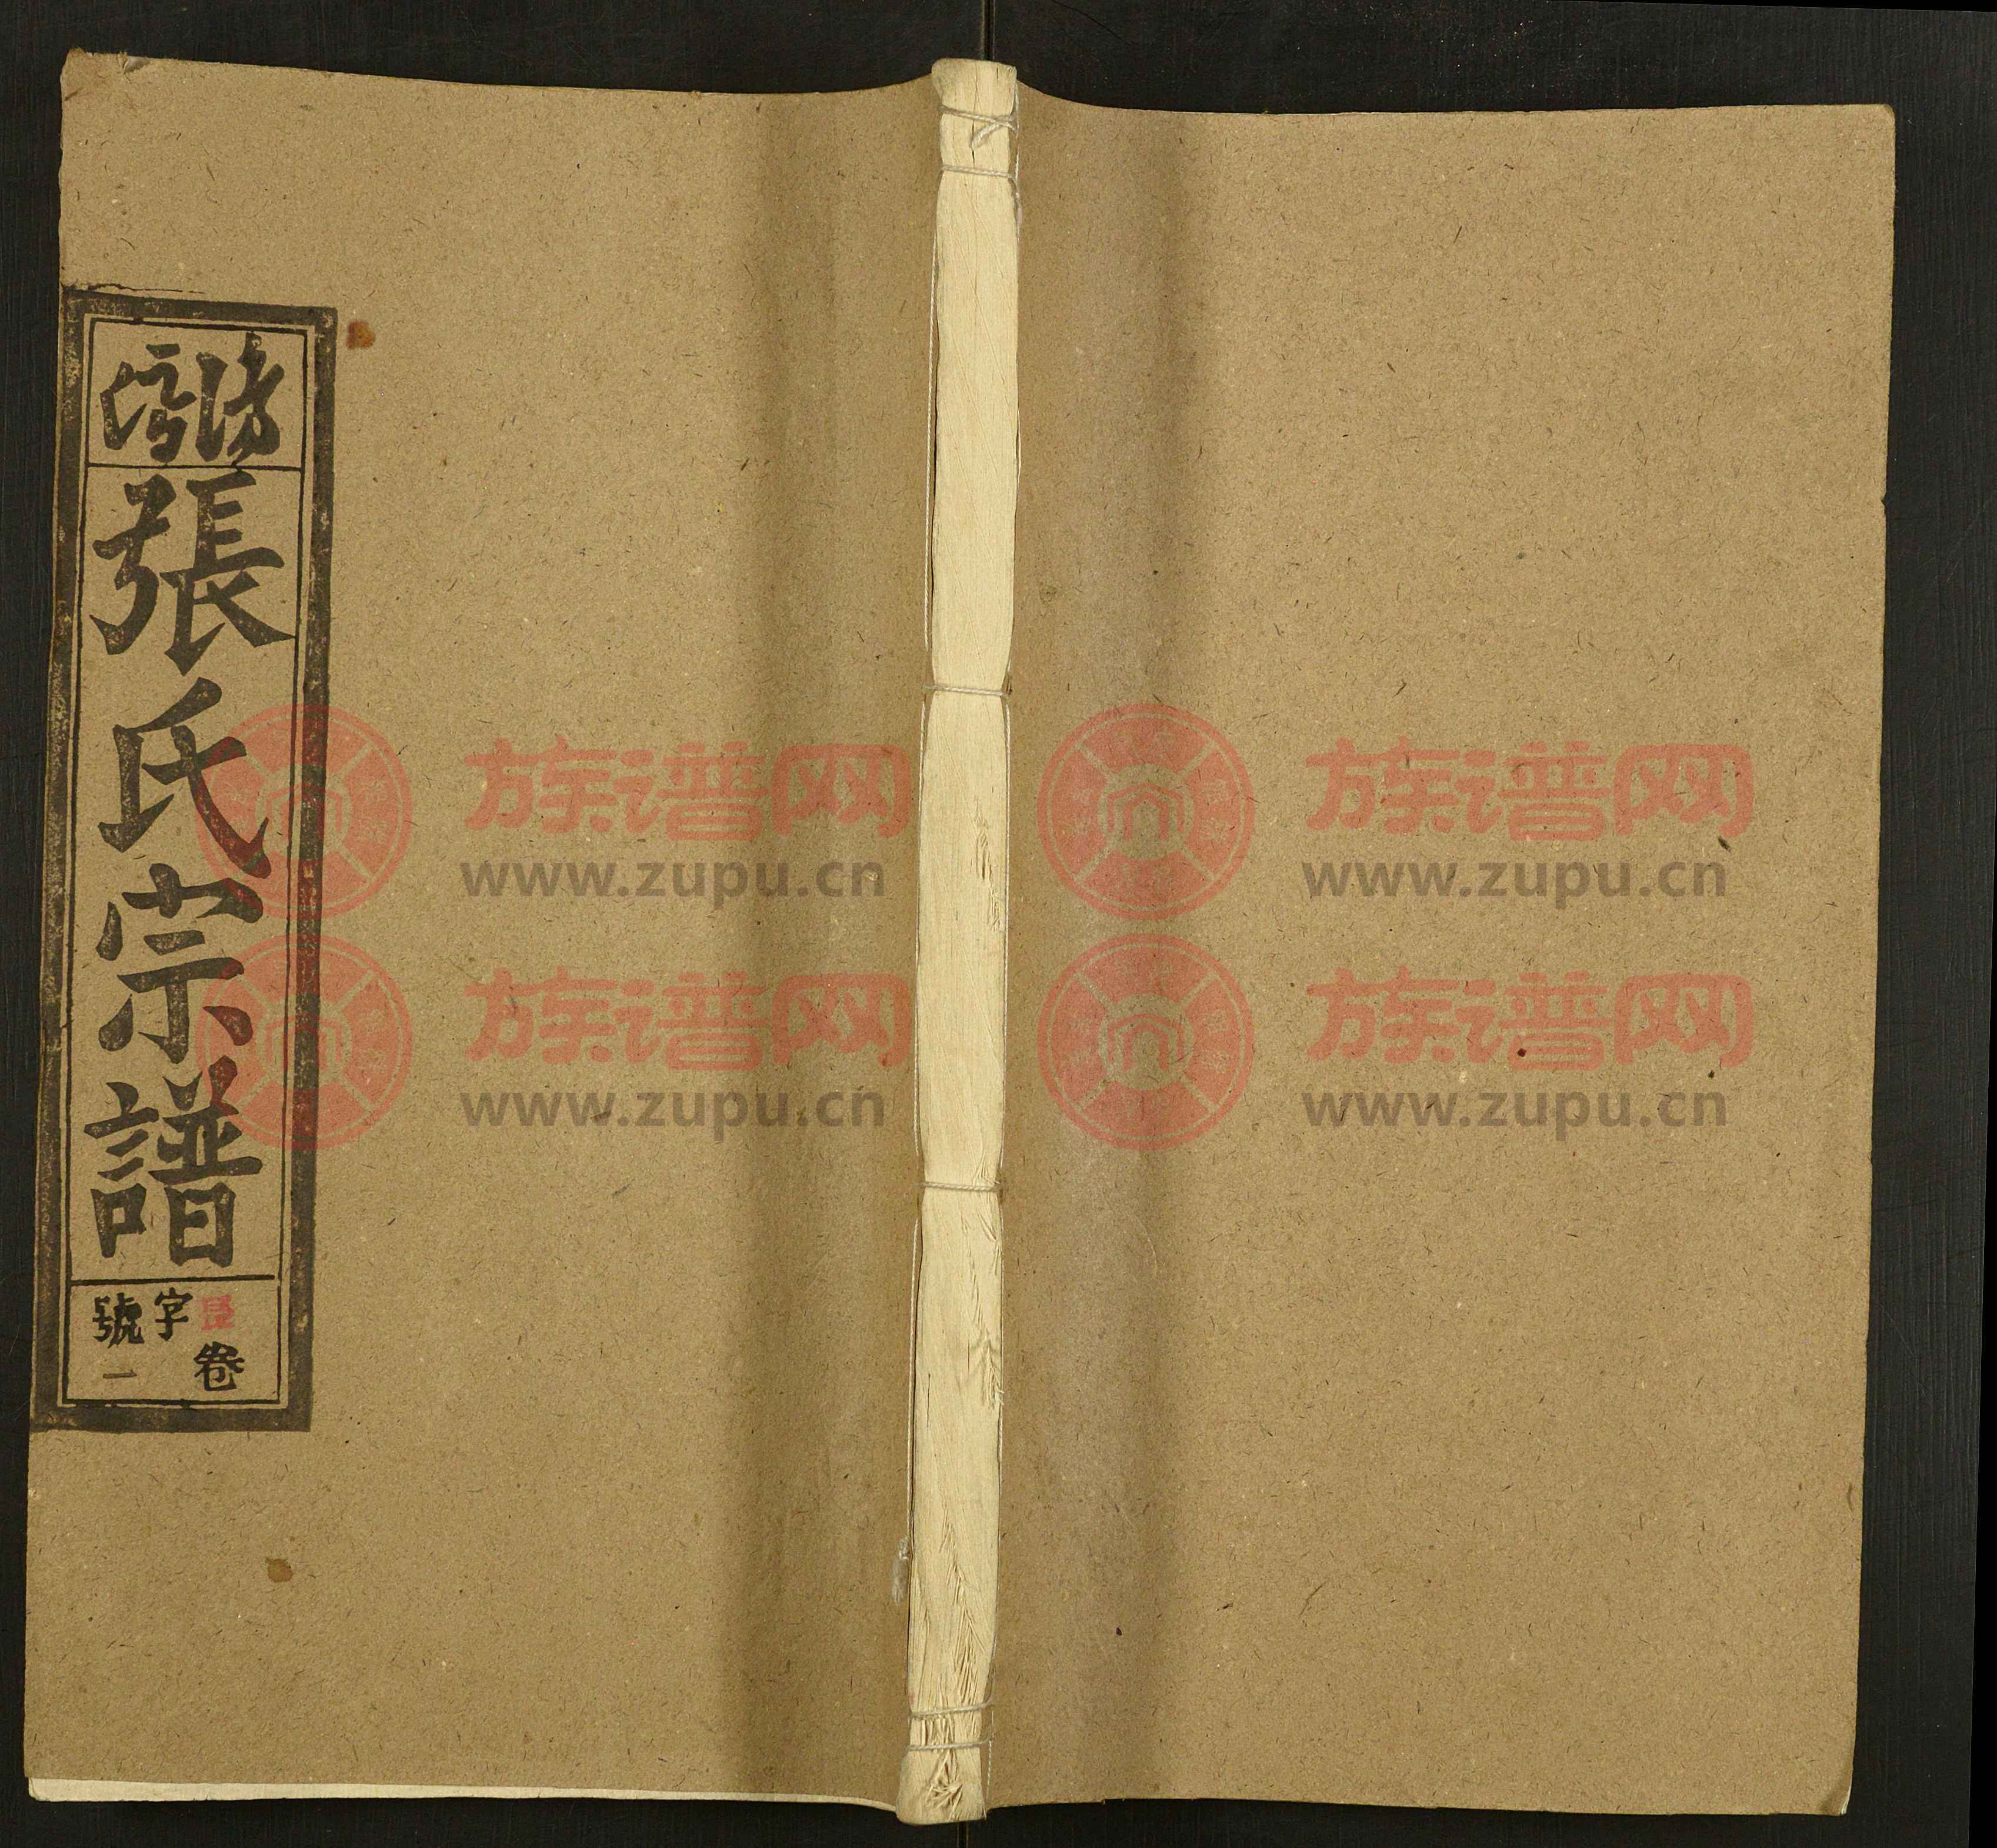 張氏宗譜
卷
字
號一
族谱网
www.zupu.cn
族谱网
www.zupu.cn
族谱网
www.zupu.cn
族谱网
www.zupu.cn